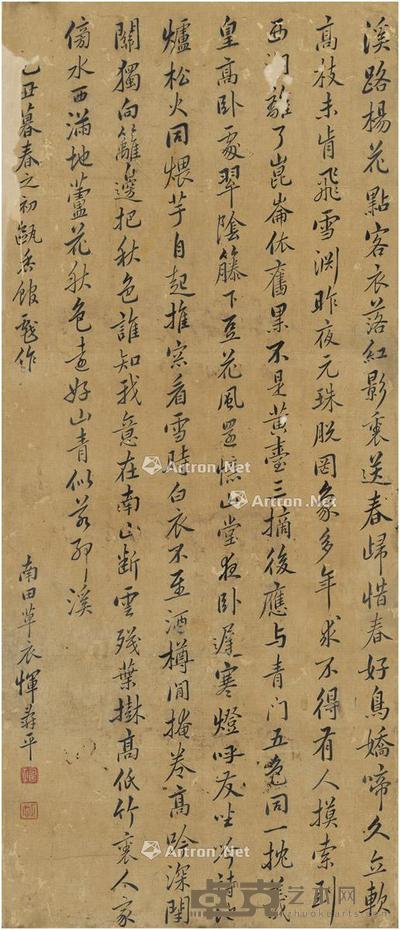 溪路楊花點客衣落紅影裏送春歸惜春好鳥嬌啼久立軟
高枝未肯飛雪渊昨夜元珠脫罔象多年求不得有人摸索到
西門離了崑崙依舊黑不是黃臺三摘後應与青门五色同一枕羲
皇高卧處翠陰籐下豆花風還憶山堂夜卧遲寒燈呼友坐
爐松火同煨芋自起推窓看雪時白衣不至酒樽閒掩卷高吟深閉
關獨向籬邊把秋色誰知我意在南山斷雲殘葉樹高低竹裏人家
傍水西滿地蘆花秋色遠好山青似若耶溪
己丑暮春之初甌香館戲作
南田草衣惲壽平
Artron.Net
Artron.Net
Artron.Net
Artron.Net
Artron.Net
卓克艺术网